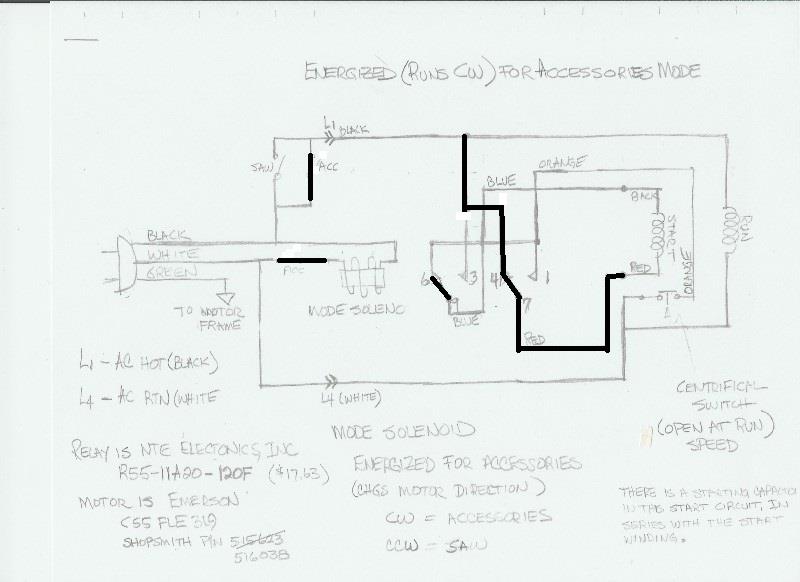 ENERGIZED (RUNS CW) FOR ACCESSORIES MODE
L1
BLACK
SAW
ACC
ORANGE
BLUE
BLACK
BLACK
WHITE
GREEN
ACC
START
RUN
RED
ORANGE
6
3
4
1
9
7
BLUE
RED
TO MOTOR
FRAME
MODE SOLENO
L1 - AC HOT (BLACK)
L4 - AC RTN (WHITE
L4 (WHITE)
CENTRIFICAL
SWITCH
(OPEN AT RUN)
SPEED
MODE SOLENOID
ENERGIZED FOR ACCESSORIES
(CHGS MOTOR DIRECTION)
CW = ACCESSORIES
CCW = SAW
RELAY IS NTE ELECTONICS, INC
R55-11A20-120F ($17.63)
MOTOR IS EMERSON
C55 FLE 319
SHOPSMITH P/N 515623
516038
THERE IS A STARTING CAPACITO
IN THIS START CIRCUIT, IN
SERIES WITH THE START
WINDING.